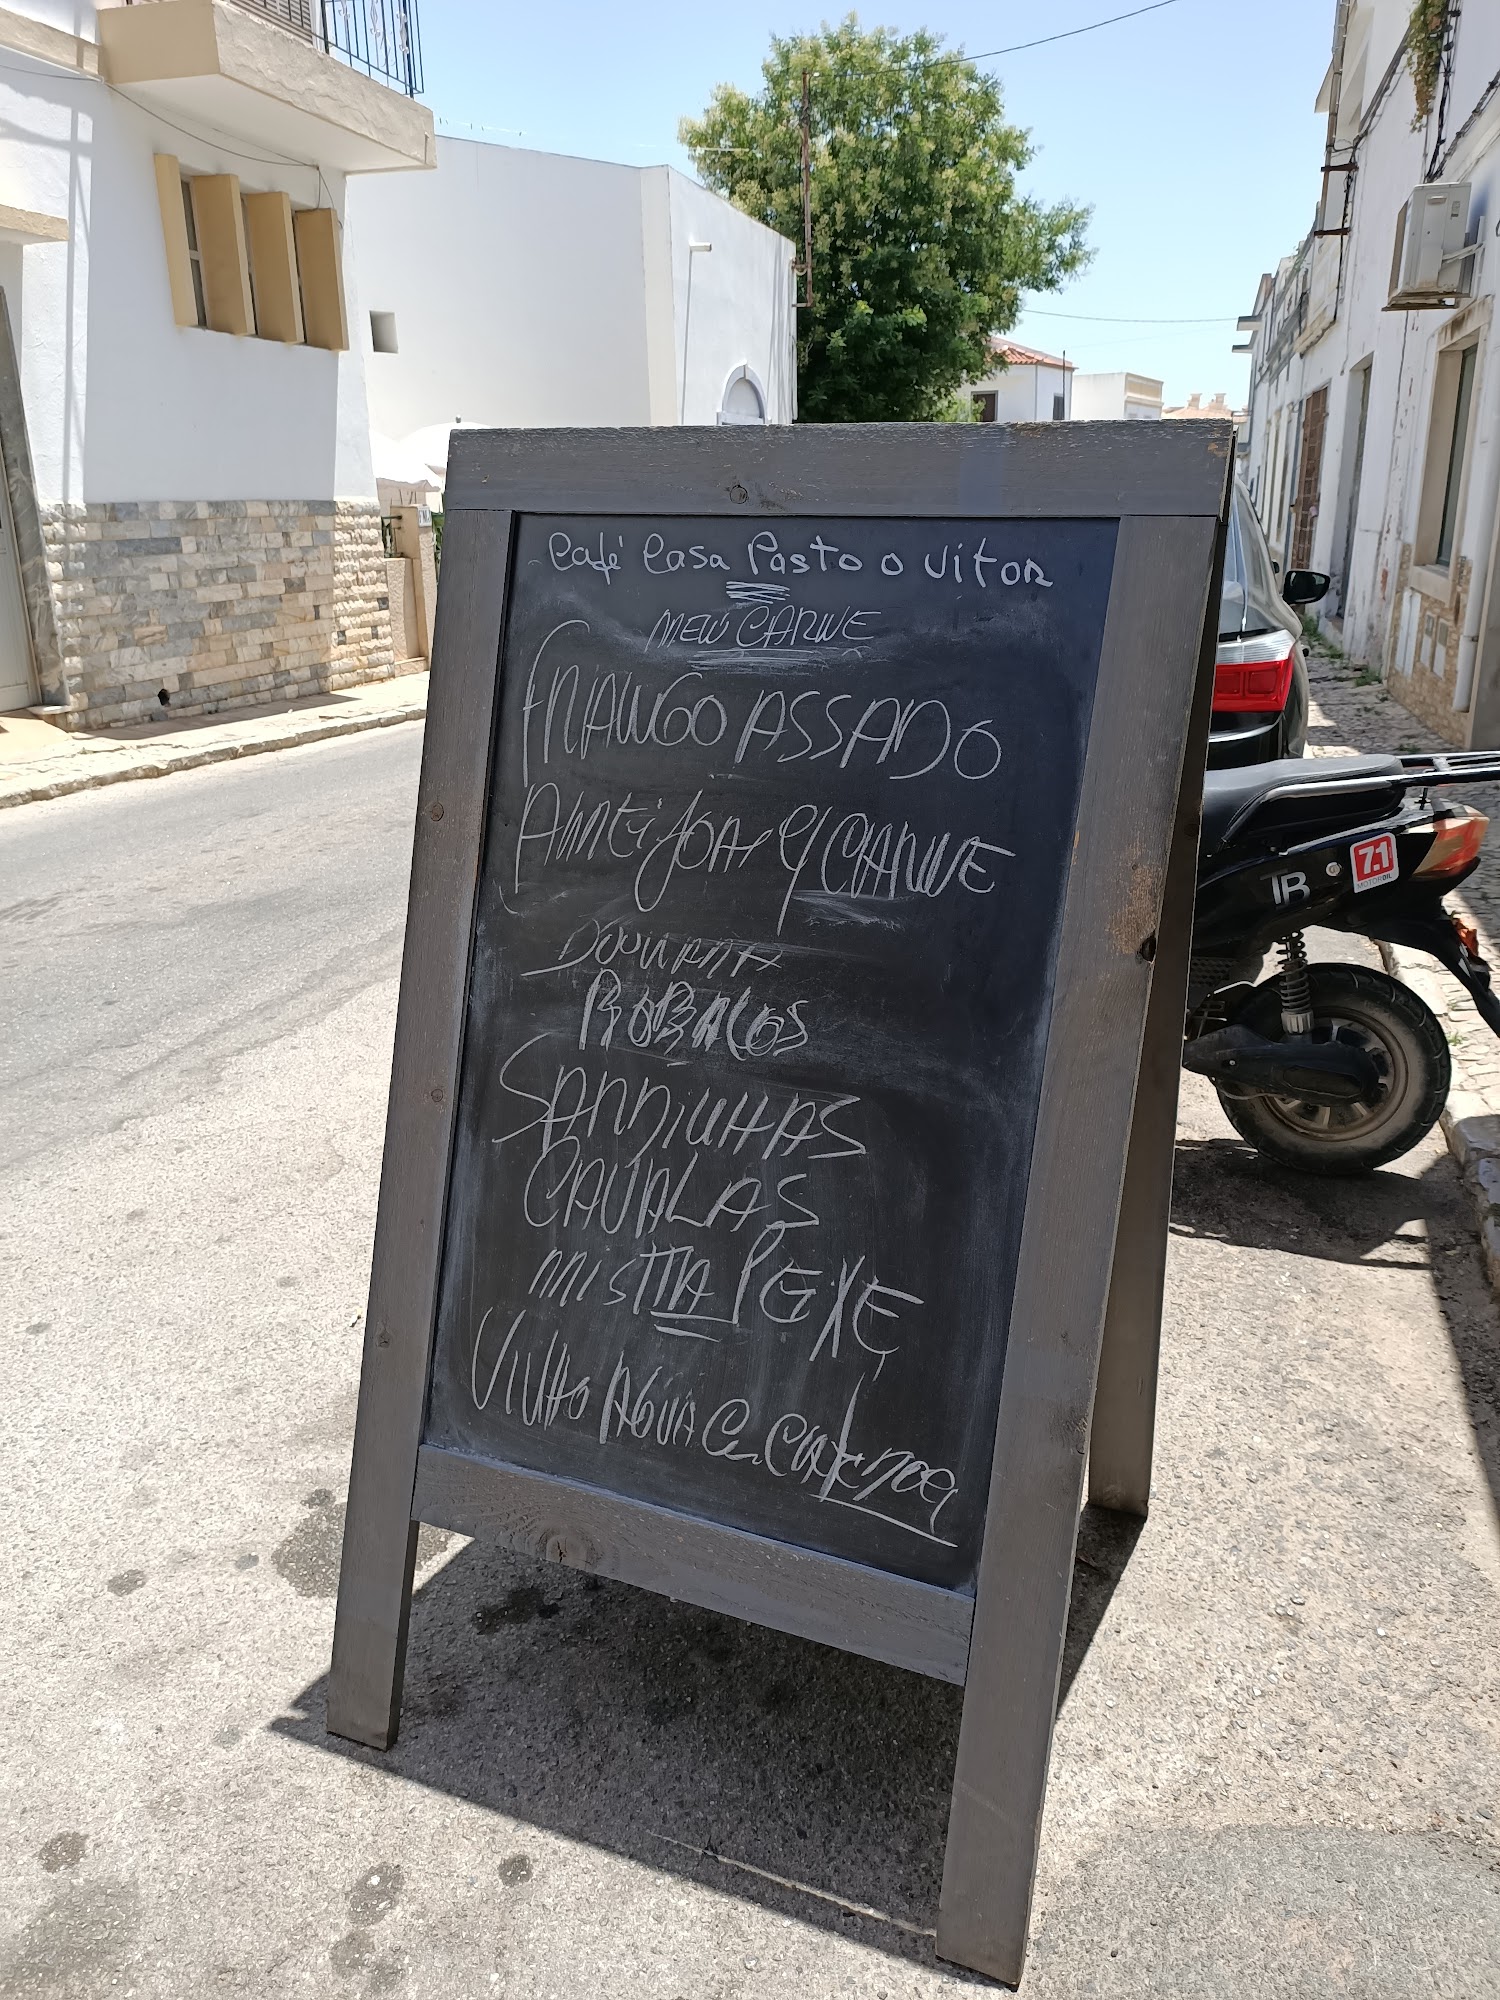 Café Casa Pasto o Vitor
MENU CARNE
FRIANGO ASSADO
AMEijOAS C/ CARNE
DOURADA
ROBALOS
SARDiNHAS
CAVALAS
MISTTA PEiXE
VINHO AGUA e CAFE
7.1
MOTOROIL